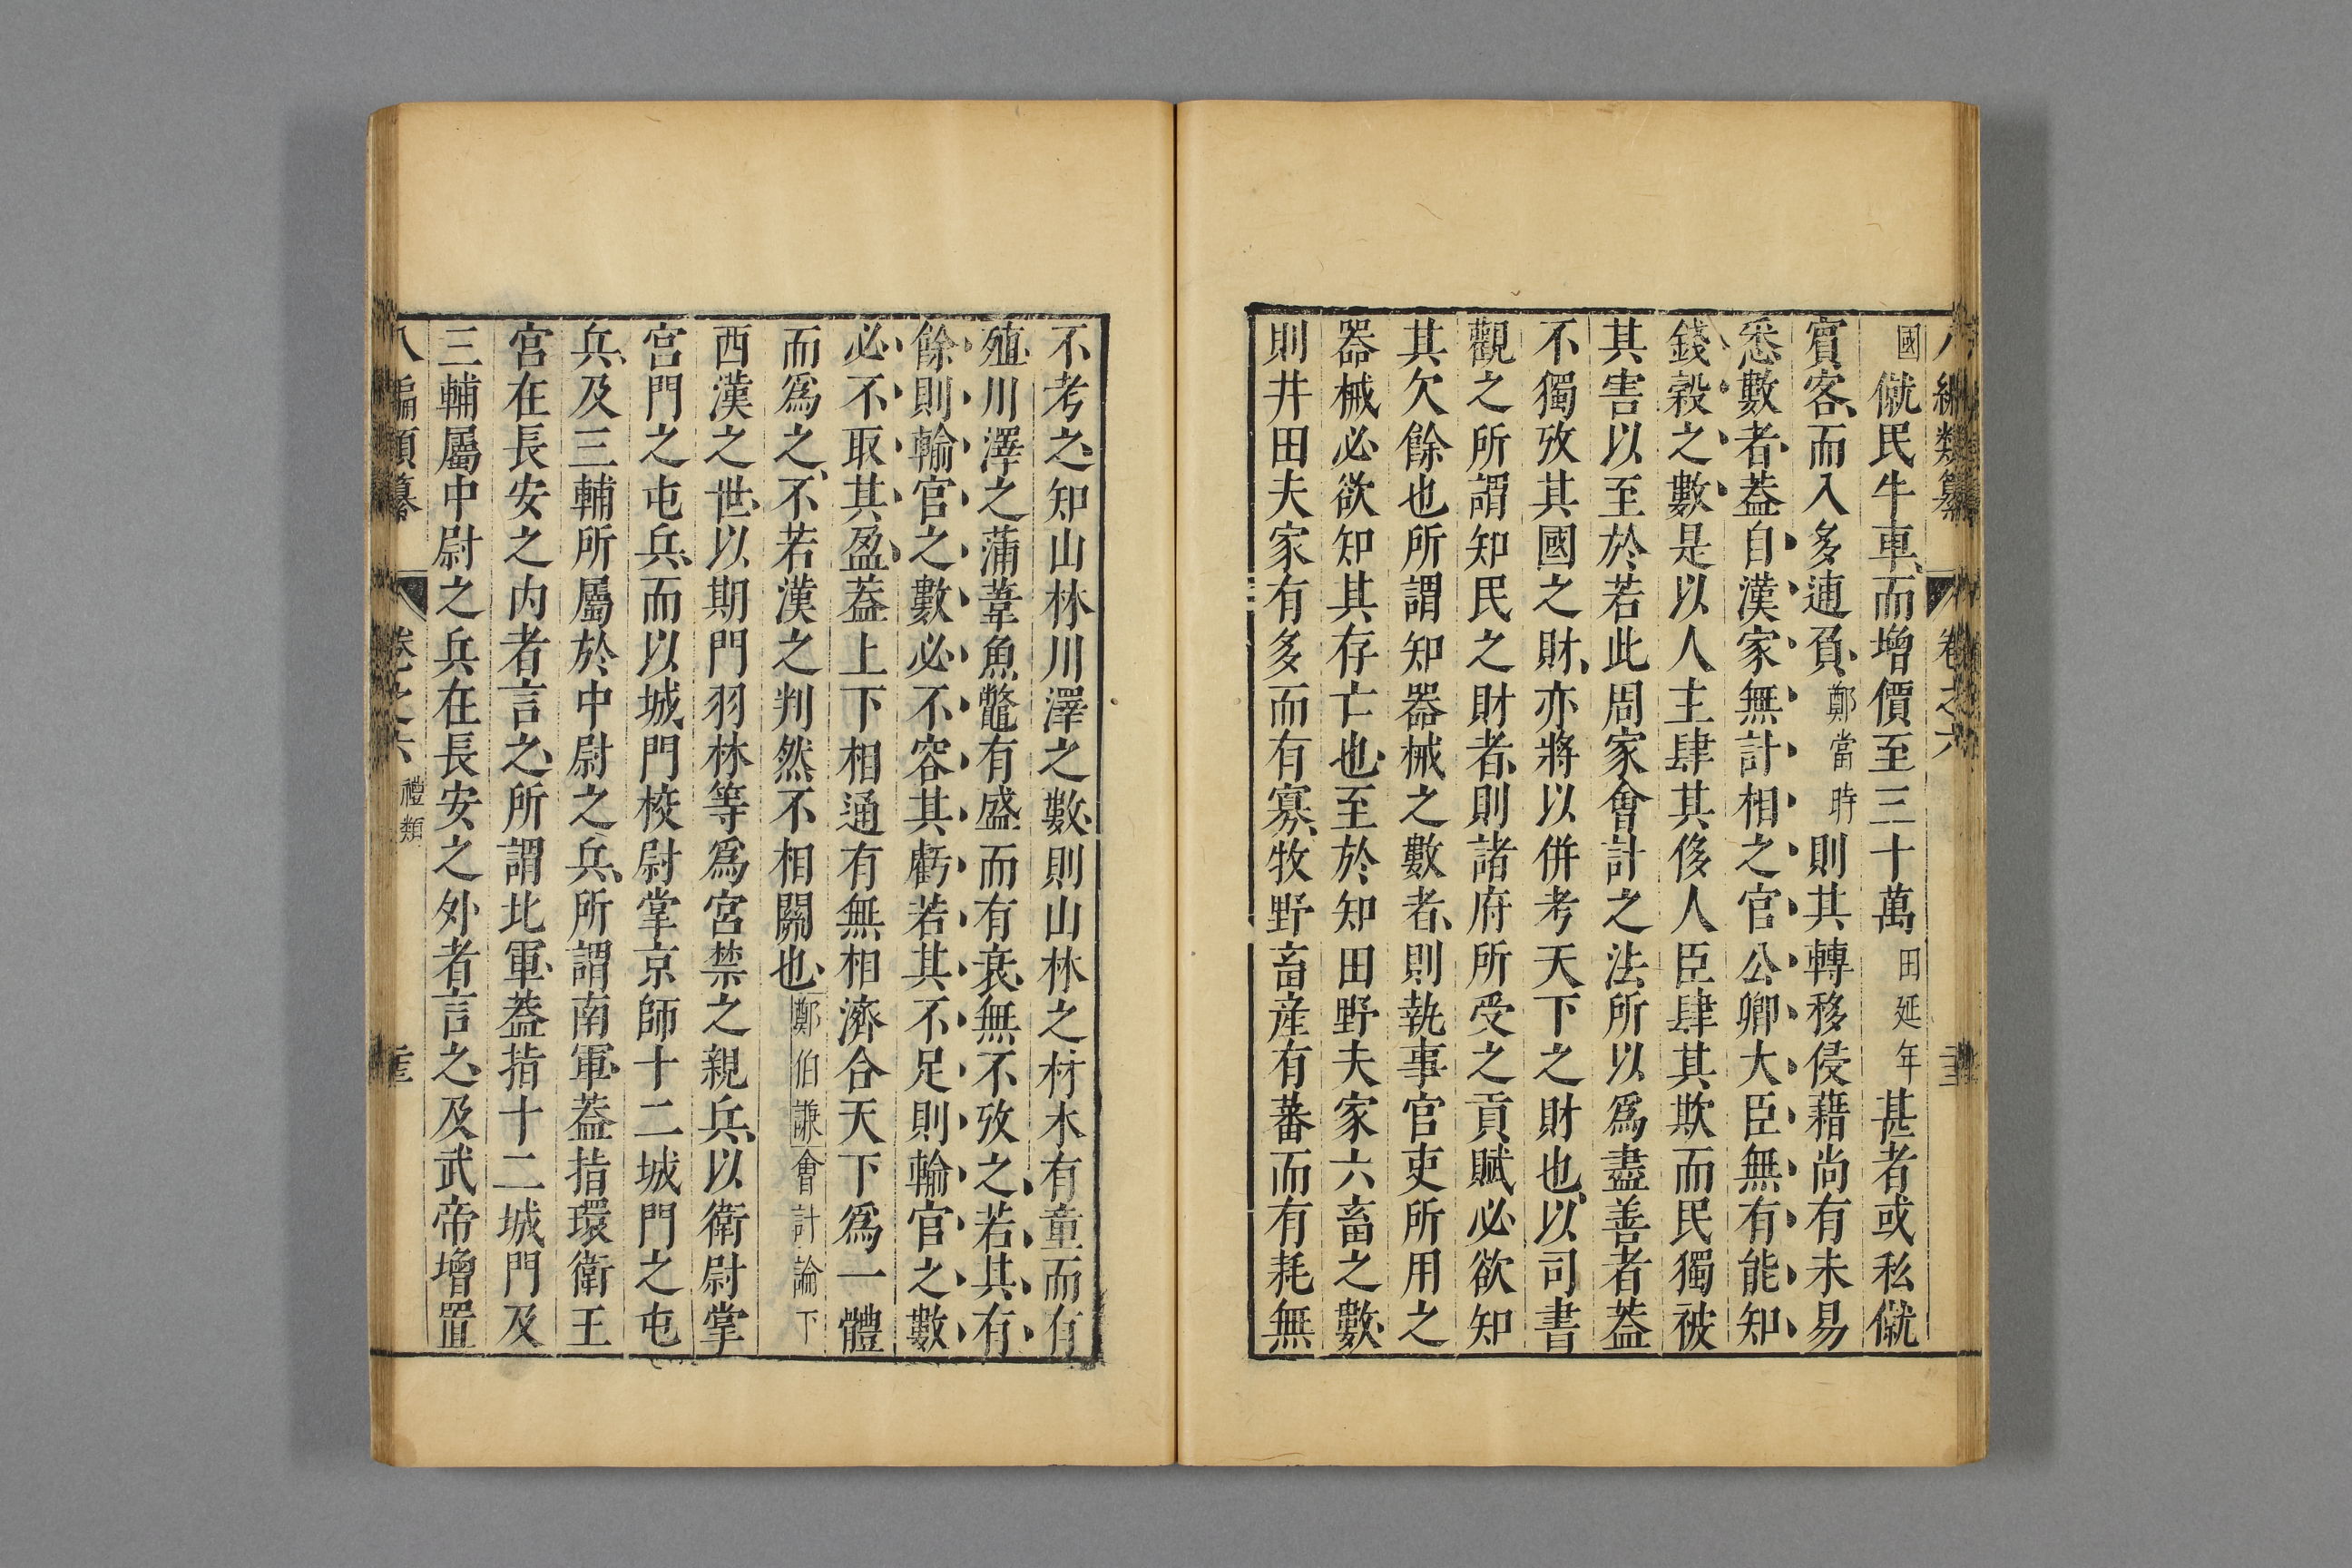 八編類纂 卷之六
國僦民牛車而增價至三十萬田延年甚者或私僦
賓客而入多逋負鄭當時則其轉移侵藉尚有未易
悉數者葢自漢家無計相之官公卿大臣無有能知
錢榖之數是以人主肆其侈人臣肆其欺而民獨被
其害以至於若此周家會計之法所以爲盡善者葢
不獨攷其國之財亦將以併考天下之財也以司書
觀之所謂知民之財者則諸府所受之貢賦必欲知
其欠餘也所謂知器械之數者則執事官吏所用之
器械必欲知其存亡也至於知田野夫家六畜之數
則井田夫家有多而有寡牧野畜産有蕃而有耗無
不考之知山林川澤之數則山林之材木有童而有
殖川澤之蒲葦魚鼈有盛而有衰無不攷之若其有
餘則輸官之數必不容其虧若其不足則輸官之數
必不取其盈葢上下相通有無相濟合天下爲一體
而爲之不若漢之判然不相關也鄭伯謙會計論下
西漢之世以期門羽林等爲宮禁之親兵以衛尉掌
宮門之屯兵而以城門校尉掌京師十二城門之屯
兵及三輔所屬於中尉之兵所謂南軍葢指環衛王
宮在長安之内者言之所謂北軍葢指十二城門及
三輔屬中尉之兵在長安之外者言之及武帝增置
八編類纂 卷之六 禮類